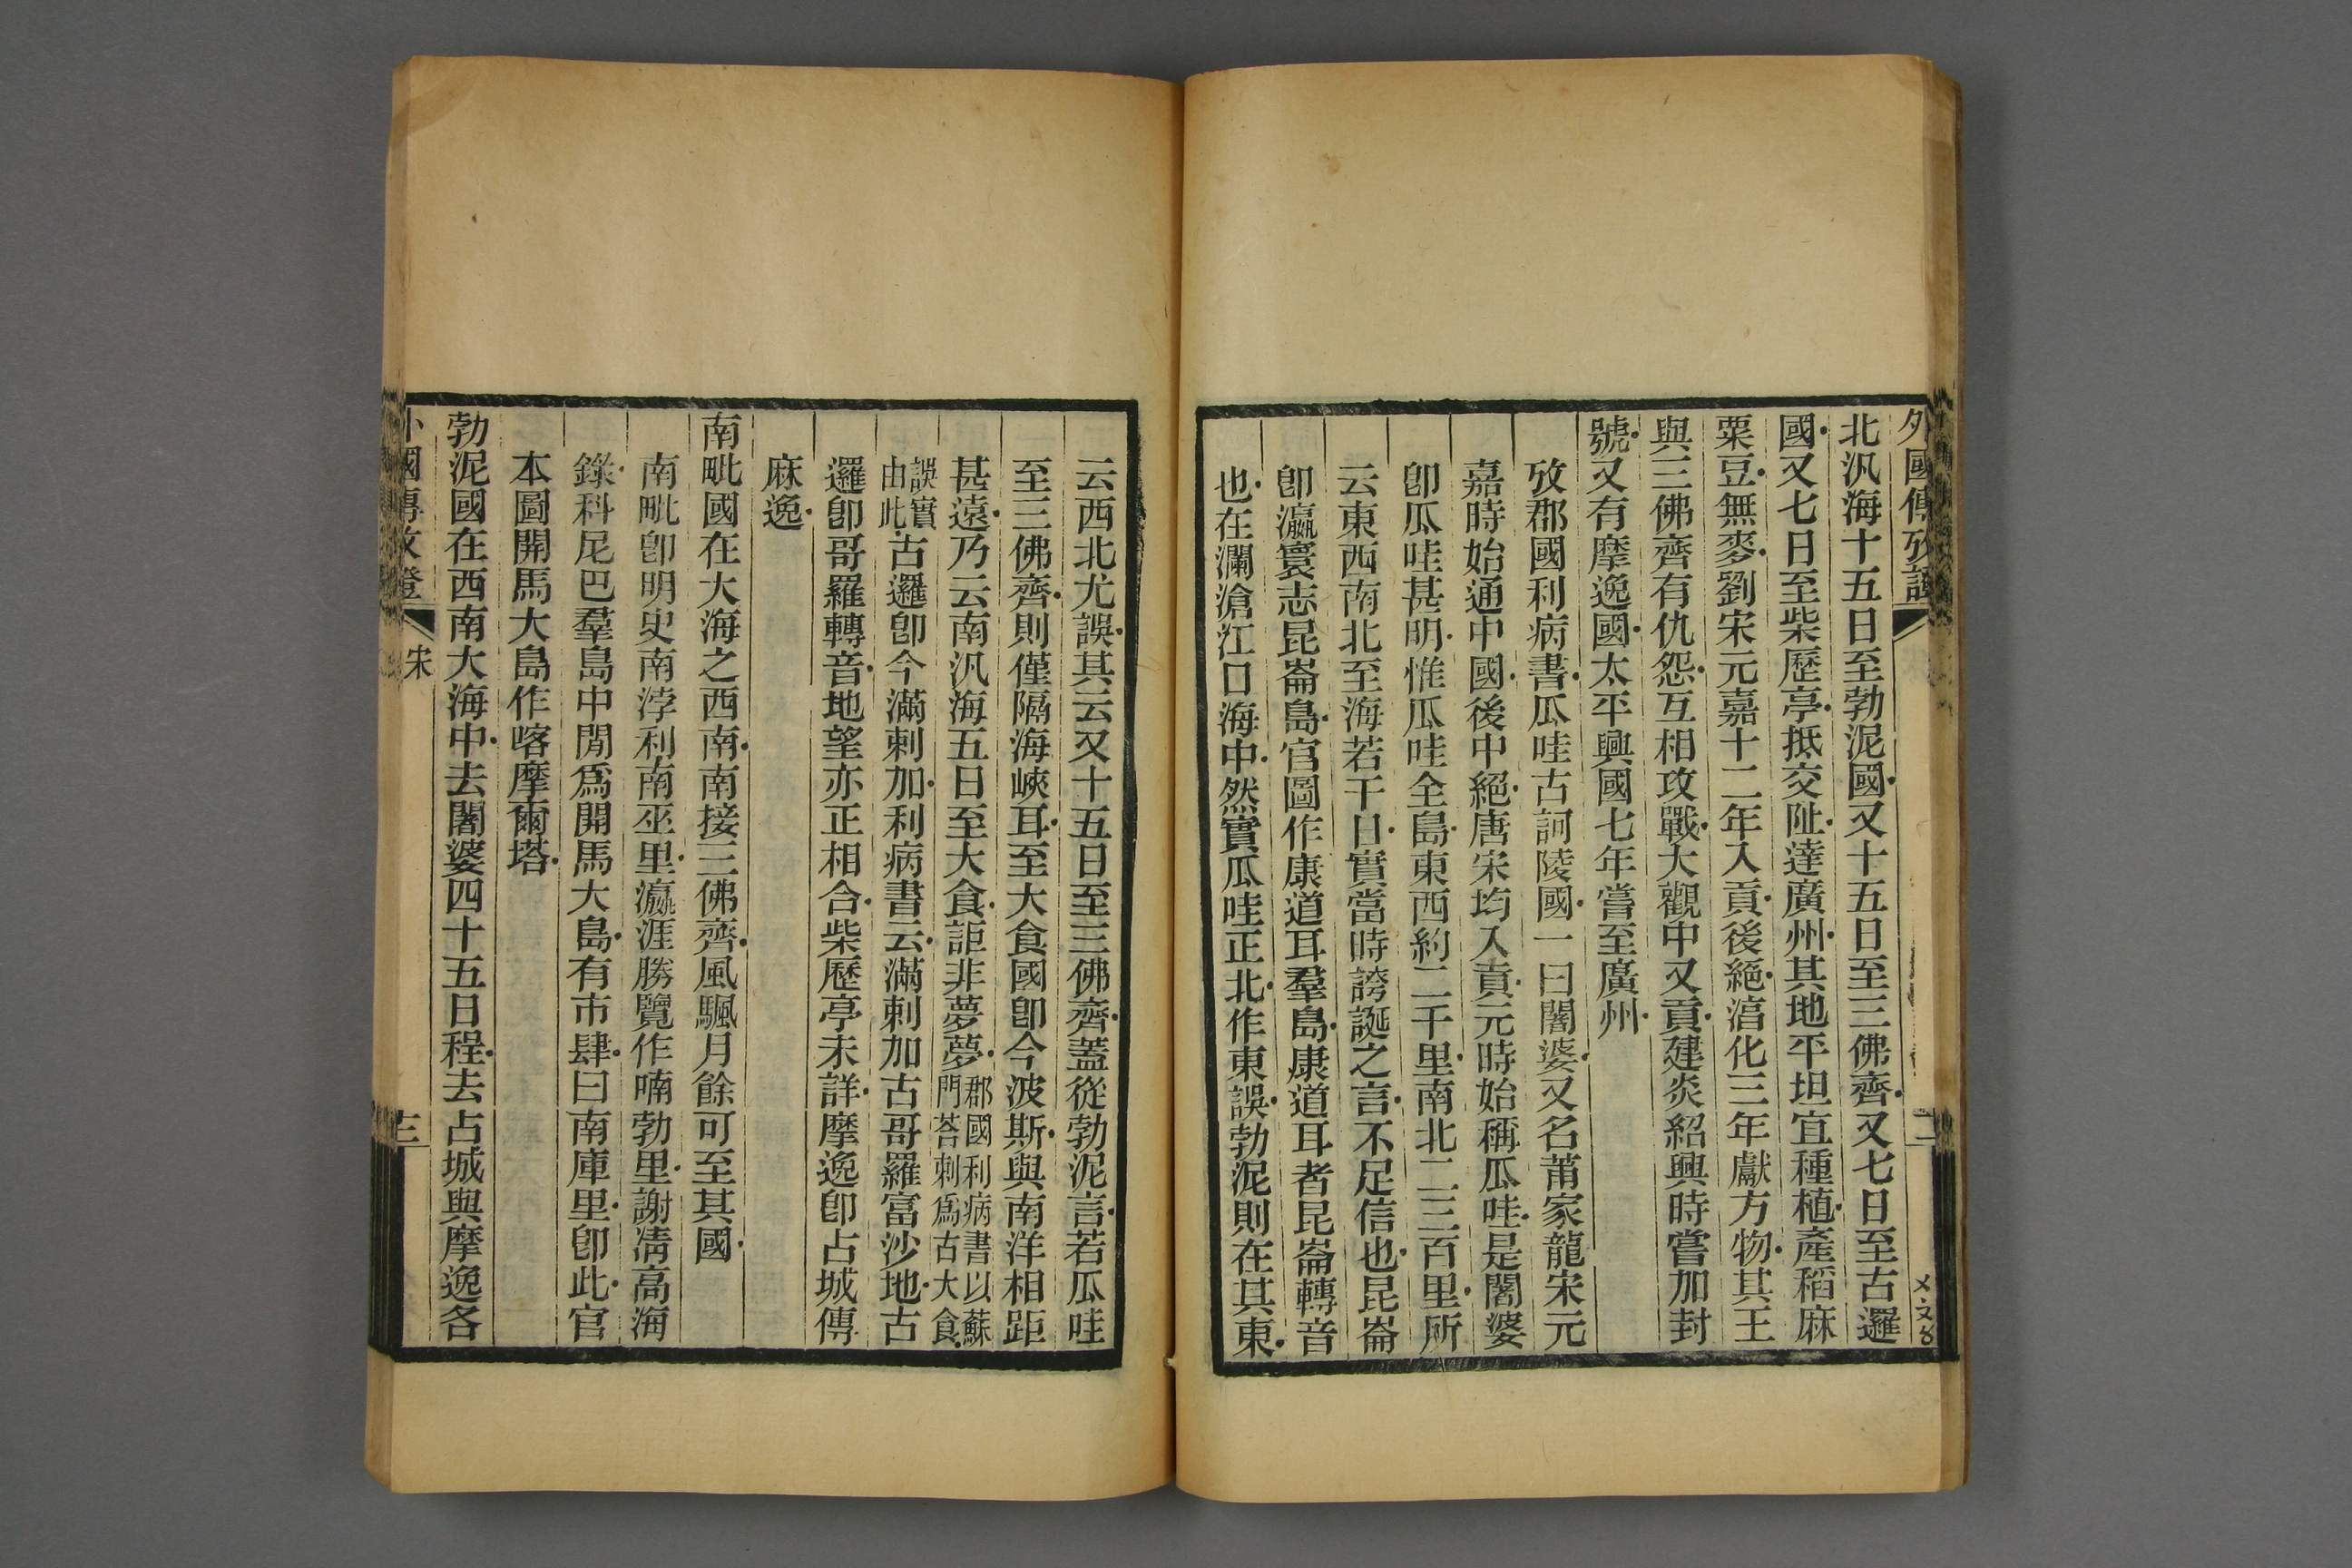 外國傳攷證
北汎海十五日至勃泥國又十五日至三佛齊又七日至古邏
國又七日至柴歷亭抵交阯達廣州其地平坦宜種植產稻麻
粟豆無麥劉宋元嘉十二年入貢後絕淳化三年獻方物其王
與三佛齊有仇怨互相攻戰大觀中又貢建炎紹興時嘗加封
號又有摩逸國太平興國七年嘗至廣州
攷郡國利病書瓜哇古訶陵國一曰闍婆又名莆家龍宋元
嘉時始通中國後中絕唐宋均入貢元時始稱瓜哇是闍婆
卽瓜哇甚明惟瓜哇全島東西約二千里南北二三百里所
云東西南北至海若干日實當時誇誕之言不足信也昆崙
卽瀛寰志昆崙島官圖作康道耳羣島康道耳者昆崙轉音
也在瀾滄江口海中然實瓜哇正北作東誤勃泥則在其東
云西北尤誤其云又十五日至三佛齊蓋從勃泥言若瓜哇
至三佛齊則僅隔海峽耳至大食國卽今波斯與南洋相距
甚遠乃云南汎海五日至大食詎非夢夢郡國利病書以蘇門荅剌爲古大食
誤實由此古邏卽今滿剌加利病書云滿剌加古哥羅富沙地古
邏卽哥羅轉音地望亦正相合柴歷亭未詳摩逸卽占城傳
麻逸
南毗國在大海之西南南接三佛齊風颿月餘可至其國
南毗卽明史南浡利南巫里瀛涯勝覽作喃勃里謝淸高海
錄科尼巴羣島中閒爲開馬大島有市肆曰南庫里卽此官
本圖開馬大島作喀摩爾塔
勃泥國在西南大海中去闍婆四十五日程去占城與摩逸各
外國傳攷證
宋
三